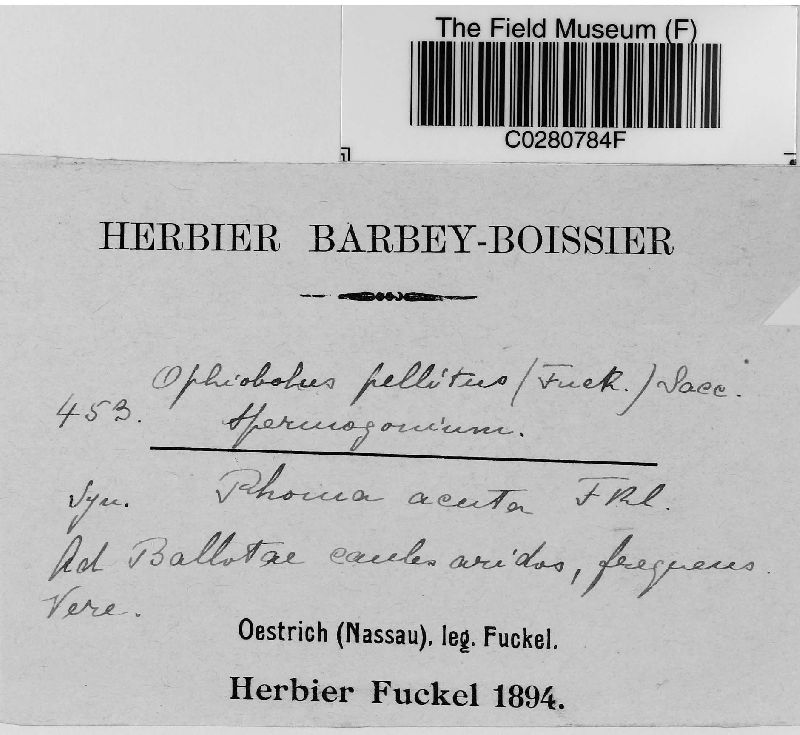 The Field Museum (F)
C0280784F
HERBIER BARBEY-BOISSIER
Ophiobolus pellitus (Fuck.) Sacc.
453. Spermogonium.
Syn. Phoma acuta Fkl.
Ad Ballotae caules aridos, frequens.
Vere.
Oestrich (Nassau), leg. Fuckel.
Herbier Fuckel 1894.